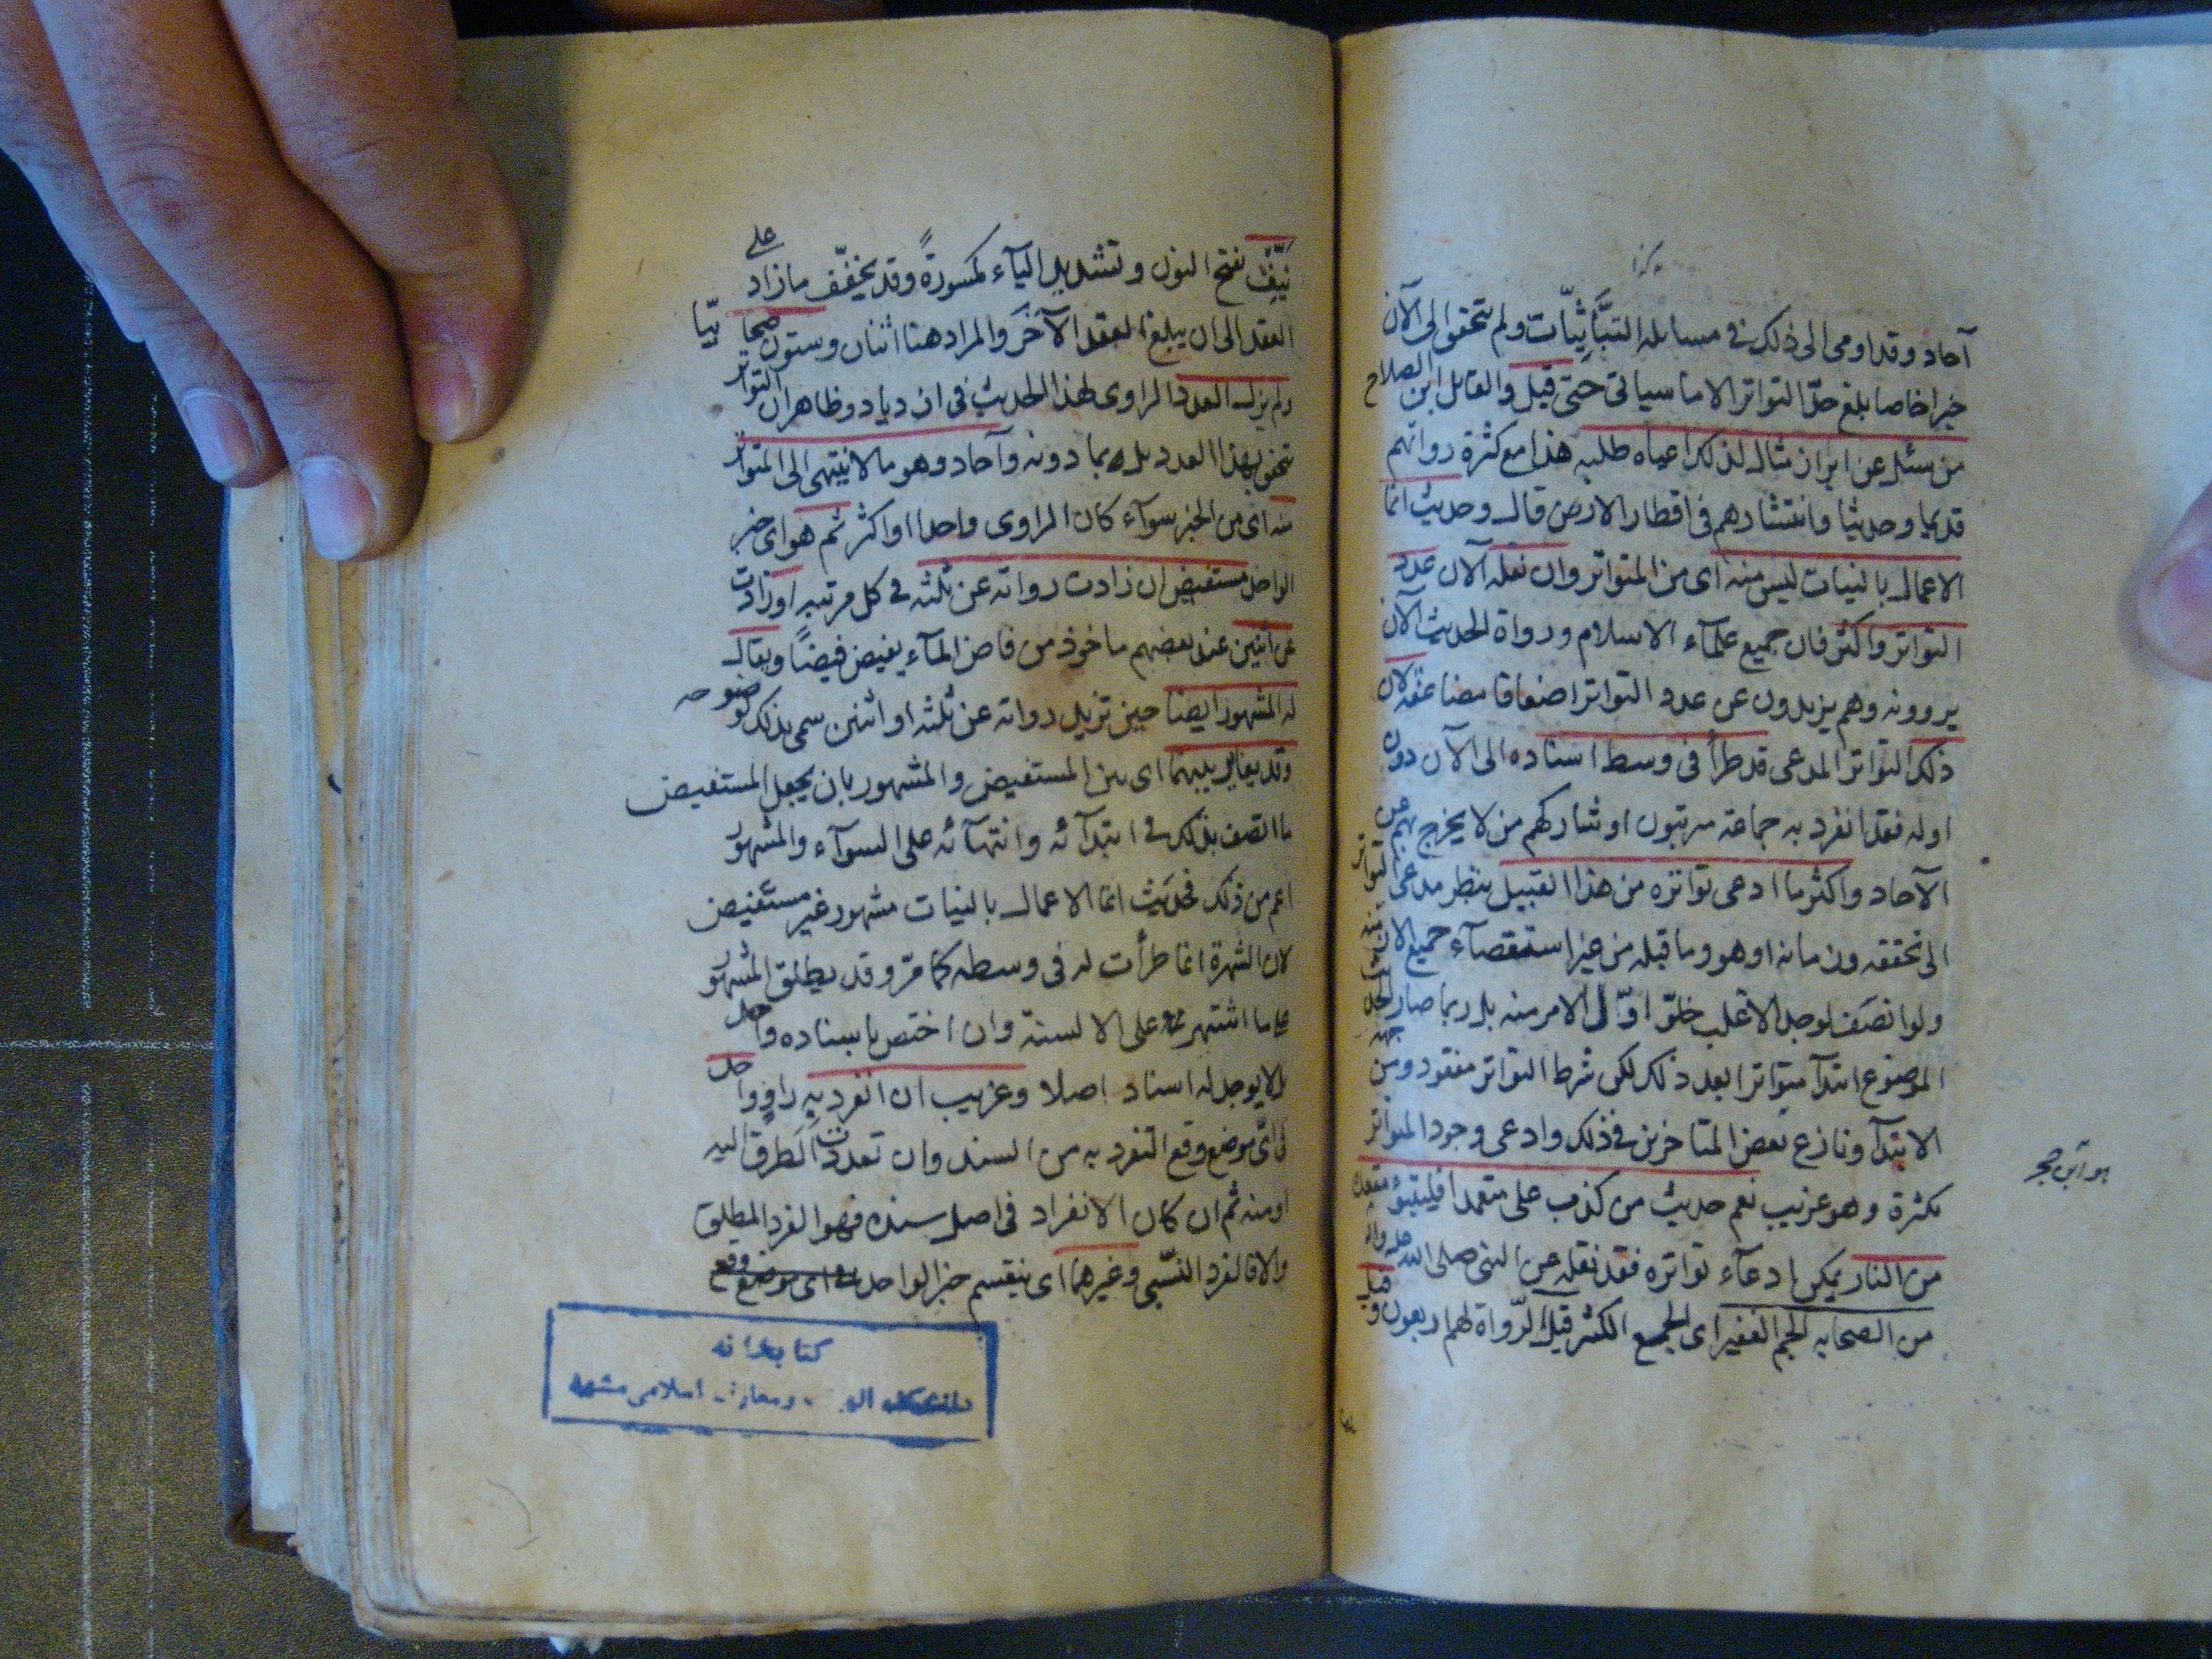 آحاد وقد اومى الى ذلك فى مسائله التبّانيّات ولم يتحقق الى الآن
خبرا خاصا بلغ حدّ التواتر الا ما سياتى حتى قيل والقائل ابن الصلاح
من سئل عن ابراز مثال لذلك اعياه طلبه هذا مع كثرة رواتهم
قديما وحديثا وانتشارهم فى اقطار الارض قال وحديث انما
الاعمال بالنيات ليس منه اى من المتواتر وان نقله الآن عدد
التواتر واكثر فان جميع علمآء الاسلام ورواة الحديث الآن
يروونه وهم يزيدون عن عدد التواتر اضعافا مضاعفة لان
ذلك التواتر المدعى قد طرأ فى وسط اسناده الى الآن دون
اوله فقد انفرد به جماعة مرتبون او شاركهم من لا يخرج بهم عن
الآحاد واكثر ما ادعى تواتره من هذا القبيل ينظر مدعى التواتر
الى تحققه فى زمانه او هو وما قبله من غير استقصآء جميع الازمنة
ولو انصف لوجد الاغلب خلوّ اوّل الامر منه بل ربما صار الحديث
الموضوع ابتدآ متواترا بعد ذلك لكن شرط التواتر مفقود من جهة
الابتدآ ونازع بعض المتاخرين فى ذلك وادعى وجود المتواتر
بكثرة وهو غريب نعم حديث من كذب على متعمدا فليتبوّء مقعده
من النار يمكن ادعآء تواتره فقد نقله عن النبى صلى الله عليه واله
من الصحابه الجم الغفير اى الجمع الكثير قيل الرّواة لهم اربعون وقيل
هو ابن حجر
نيّف بفتح النون وتشديد اليآء مكسورةً وقد يخفّف ما زاد على
العقد الى ان يبلغ العقد الآخر والمراد هنا اثنان وستون صحابيّا
ولم يزل العدد الراوى لهذا الحديث فى ازدياد وظاهر ان التواتر
يتحقق بهذا العدد بل بما دونه وآحاد وهو ما لا ينتهى الى المتواتر
منه اى من الخبر سوآء كان الراوى واحدا او اكثر ثم هو اى خبر
الواحد مستفيض ان زادت رواته عن ثلثة فى كل مرتبه او زادت
عن اثنين عند بعضهم ماخوذ من فاض المآء يفيض فيضاً ويقال
له المشهور ايضا حين تزيد رواته عن ثلثه او اثنين سمى بذلك لوضوحه
وقد يغاير بينهما اى بين المستفيض والمشهور بان يجعل المستفيض
ما اتصف بذلك فى ابتدآئه وانتهآئه على السوآء والمشهور
اعم من ذلك فحديث انما الاعمال بالنيات مشهور غير مستفيض
لان الشهرة انما طرأت له فى وسطه كما مرّ وقد يطلق المشهور
على ما اشتهر على الالسنة وان اختص باسناد واحد
بل لا يوجد له اسناد اصلا وغريب ان انفرد به راوٍ واحد
فى اىّ موضع وقع التفرد به من السند وان تعددت الطرق اليه
او منه ثم ان كان الانفراد فى اصل سنده فهو الفرد المطلق
والا فالفرد النسّبى وغيرهما اى ينقسم خبر الواحد
كتابخانه
دانشكده الهيات ومعارف اسلامى مشهد